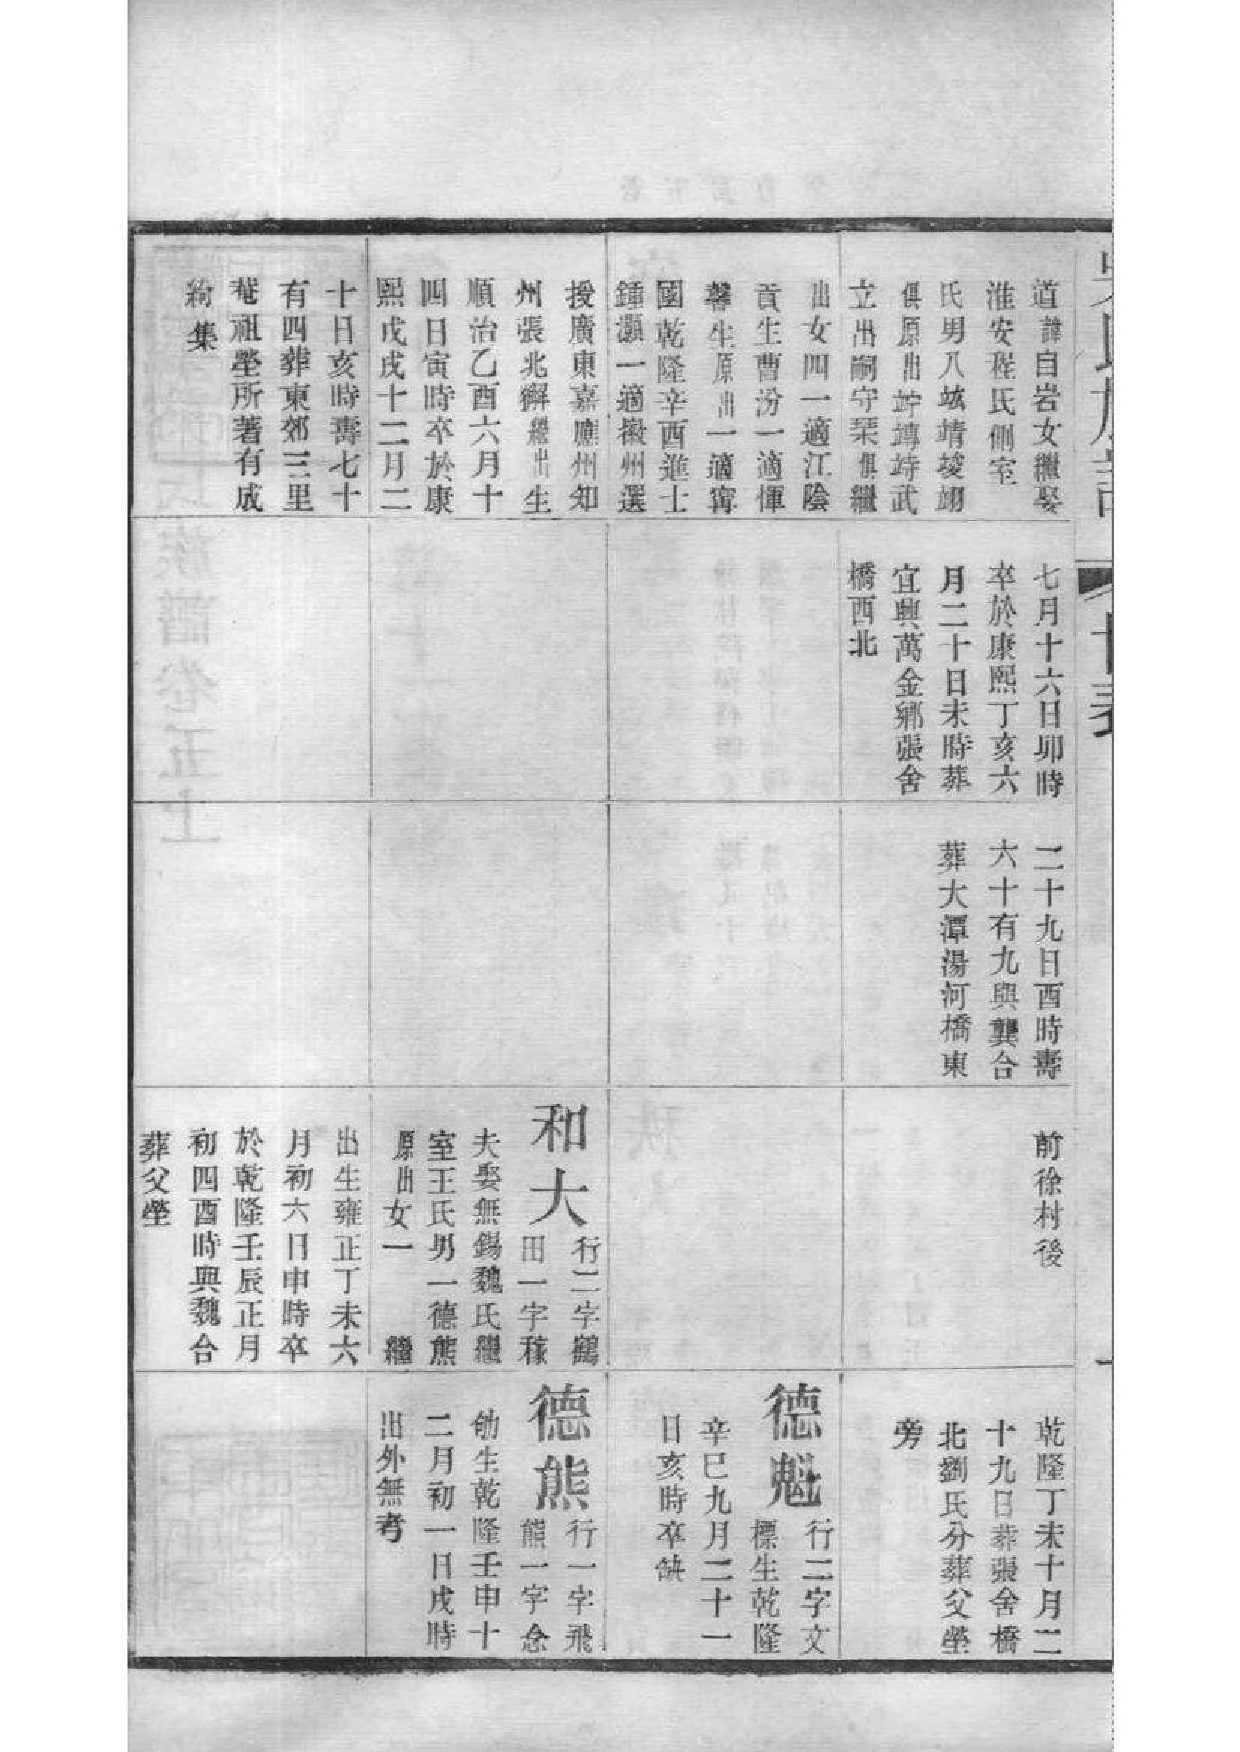 道諱自岩女繼娶
淮安程氏側室
氏男八竑靖竣翊
俱原出竚竱竛武
立出嗣守栞俱繼
出女四一適江陰
貢生曹汾一適惲
馨生原出一適甯
國乾隆辛酉進士
鍾灝一適徽州選
授廣東嘉應州知
州張兆獬繼出生
順治乙酉六月十
四日寅時卒於康
熙戊戌十二月二
十日亥時壽七十
有四葬東郊三里
菴祖塋所著有成
綺集
七月十六日卯時
卒於康熙丁亥六
月二十日未時葬
宜興萬金鄉張舍
橋西北
二十九日酉時壽
六十有九與龔合
葬大潭湯河橋東
前徐村後
和大
行二字鶴
田一字稼
夫娶無錫魏氏繼
室王氏男一德熊
原出女一 繼
出生雍正丁未六
月初六日申時卒
於乾隆壬辰正月
初四酉時與魏合
葬父塋
乾隆丁未十月二
十九日葬張舍橋
北劉氏分葬父塋
旁
德魁
行二字文
標生乾隆
辛巳九月二十一
日亥時卒缺
德熊
行一字飛
熊一字念
劬生乾隆壬申十
二月初一日戌時
出外無考
世表